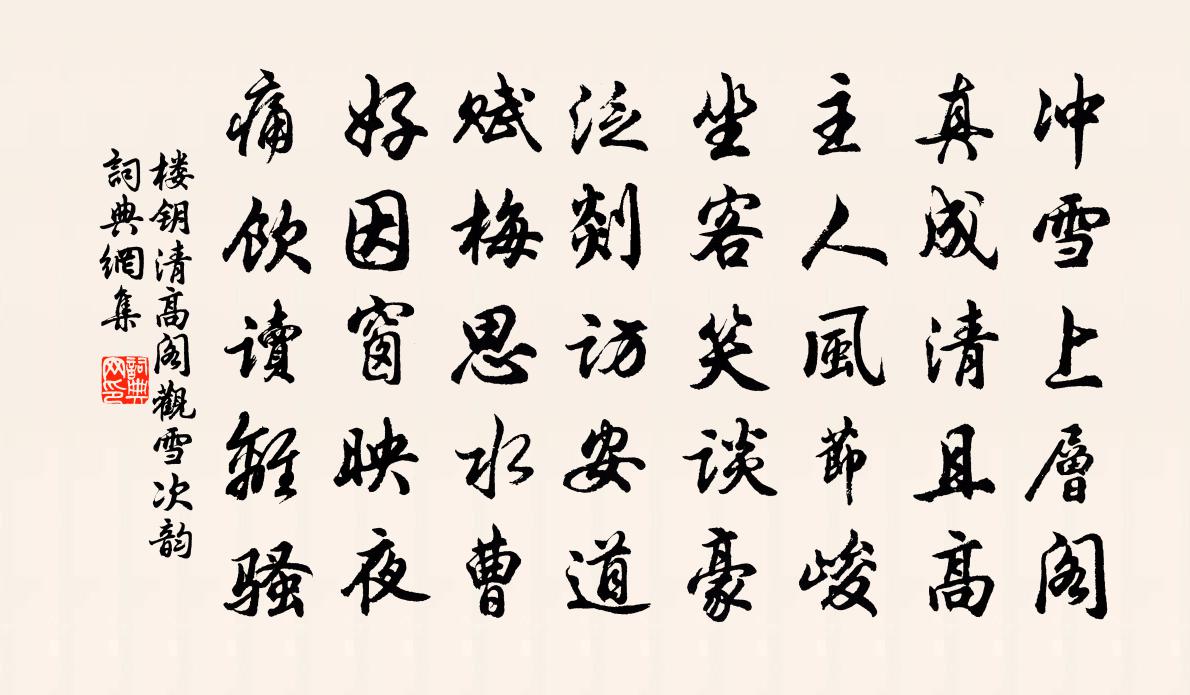 冲雪上層阁
真成清且高
主人風節峻
坐客笑談豪
泛剡访安道
赋梅思水曹
好因窗映夜
痛飲读離骚
楼钥清高阁觀雪次韵
詞典網集
詞典网印